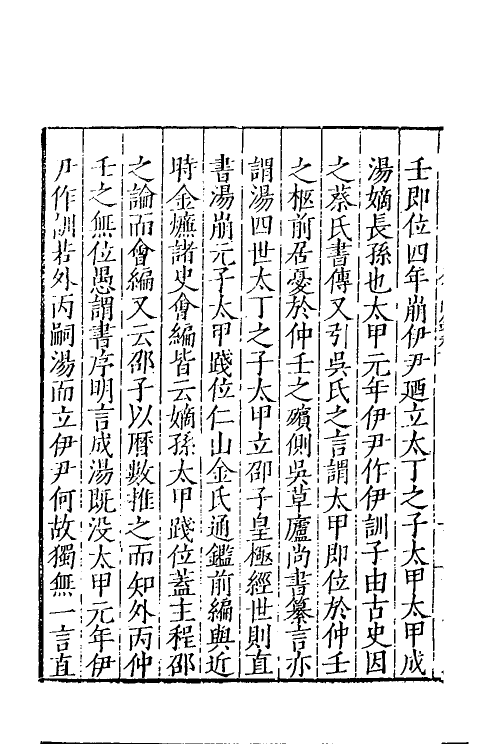 壬即位四年崩伊尹廼立太丁之子太甲太甲成
湯嫡長孫也太甲元年伊尹作伊訓子由古史因
之蔡氏書傳又引吳氏之言謂太甲即位於仲壬
之柩前居憂於仲壬之殯側吳草廬尚書纂言亦
謂湯四世太丁之子太甲立邵子皇極經世則直
書湯崩元子太甲踐位仁山金氏通鑑前編與近
時金燫諸史會編皆云嫡孫太甲踐位蓋主程邵
之論而會編又云邵子以曆數推之而知外丙仲
壬之無位愚謂書序明言成湯既没太甲元年伊
尹作訓若外丙嗣湯而立伊尹何故獨無一言直